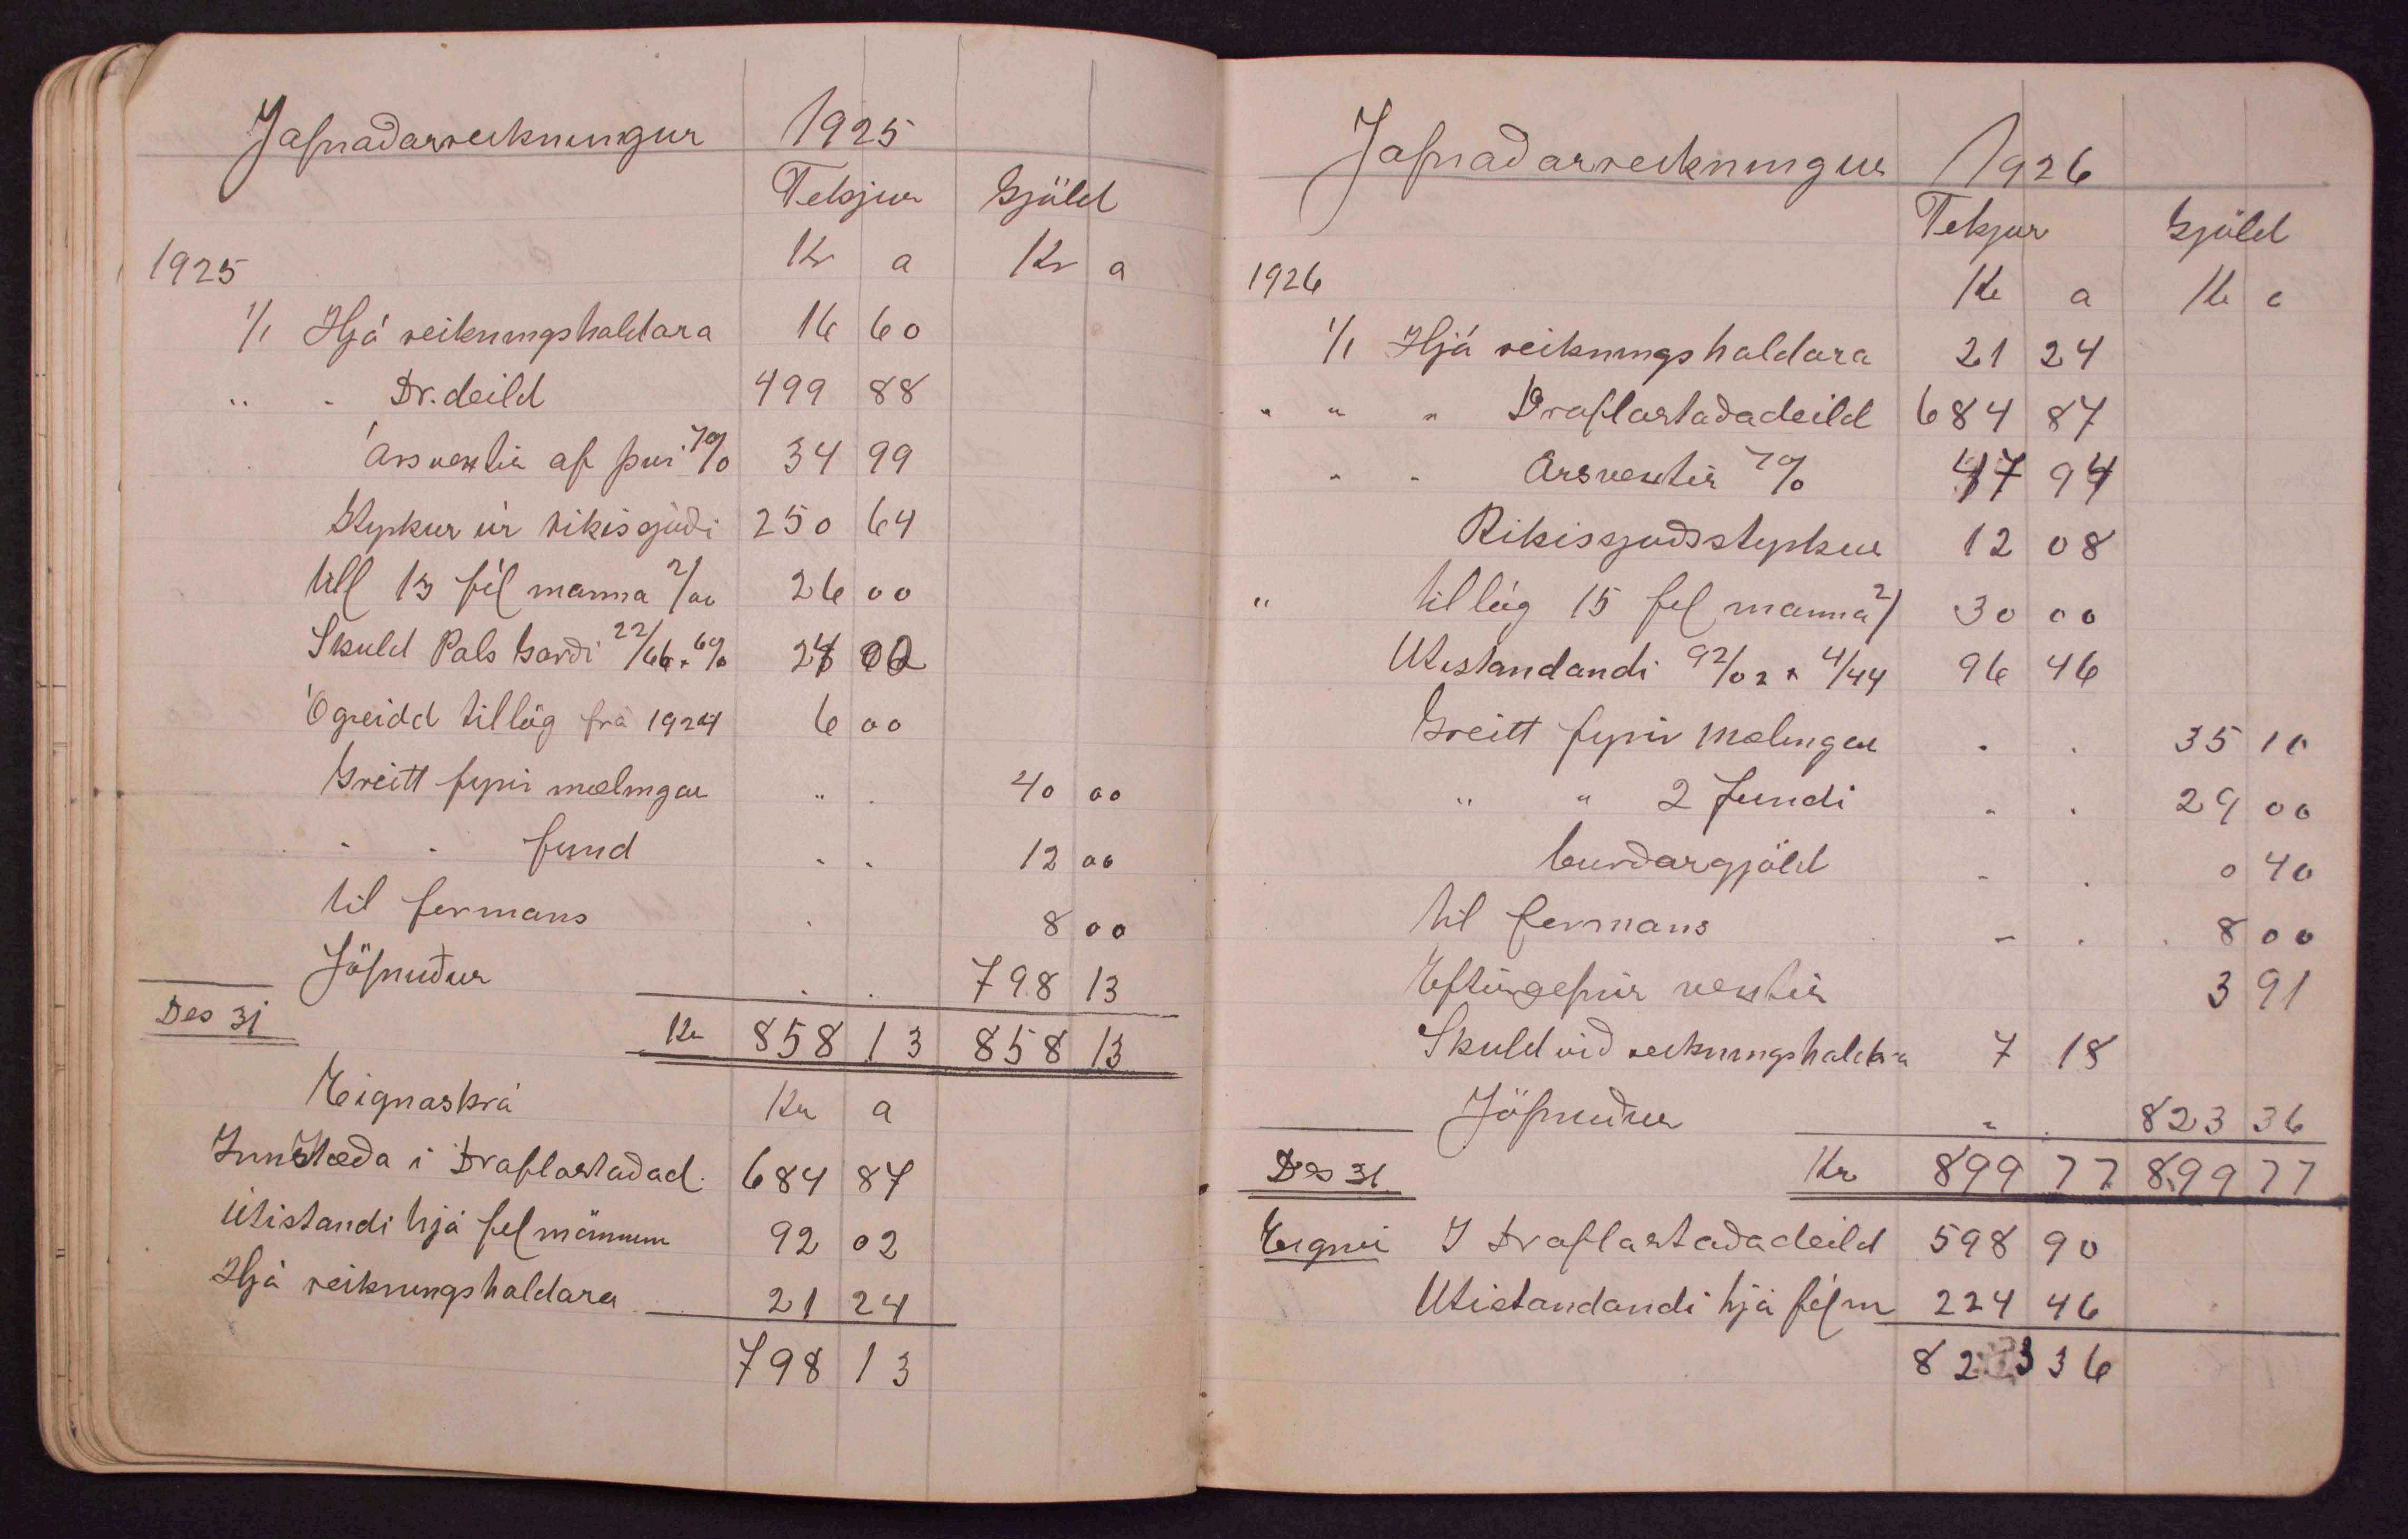 Jafnaðarreikningur 1925
Tekjur Gjöld
1925 Kr a Kr a
1/1 Hjá reikningshaldara 16 60
" - Dr. deild 499 88
Ársvextir af því 7% 34 99
Styrkur úr ríkissjóði 250 64
till 13 fél manna 2/00 26 00
Skuld Pals Garði 22/66 + 6% 24 02
Ógreidd tillög frá 1924 6 00
Greitt fyrir mælingar " . 40 00
- - fund . . 12 00
til fermans . 8 00
Jöfnuður . . 798 13
Des 31 Kr 858 13 858 13
Eignaskrá Kr a
Innstæða i Draflastaðad. 684 87
Útistandi hjá fel mönnum 92 02
Hjá reikningshaldara 21 24
798 13
Jafnaðarreikningur 1926
Tekjur Gjöld
1926 Kr a Kr a
1/1 Hjá reikningshaldara 21 24
" " " Draflastaðadeild 684 87
" " Arsvextir 7% 47 94
Rikissjoðsstyrkur 12 08
" tillög 15 fel manna 2/ 30 00
Utistandandi 92/02 + 4/44 96 46
Greitt fyrir mælingar . . 35 10
" " 2 fundi - . 29 00
burðargjöld - . 0 40
til fermans - . 8 00
Eftirgefnir vextir 3 91
Skuld við reikningshaldara 7 18
Jöfnuður " . 823 36
Des 31 Kr 899 77 899 77
Eignir I Draflastaðadeild 598 90
Utistandandi hjá félm 224 46
823 36